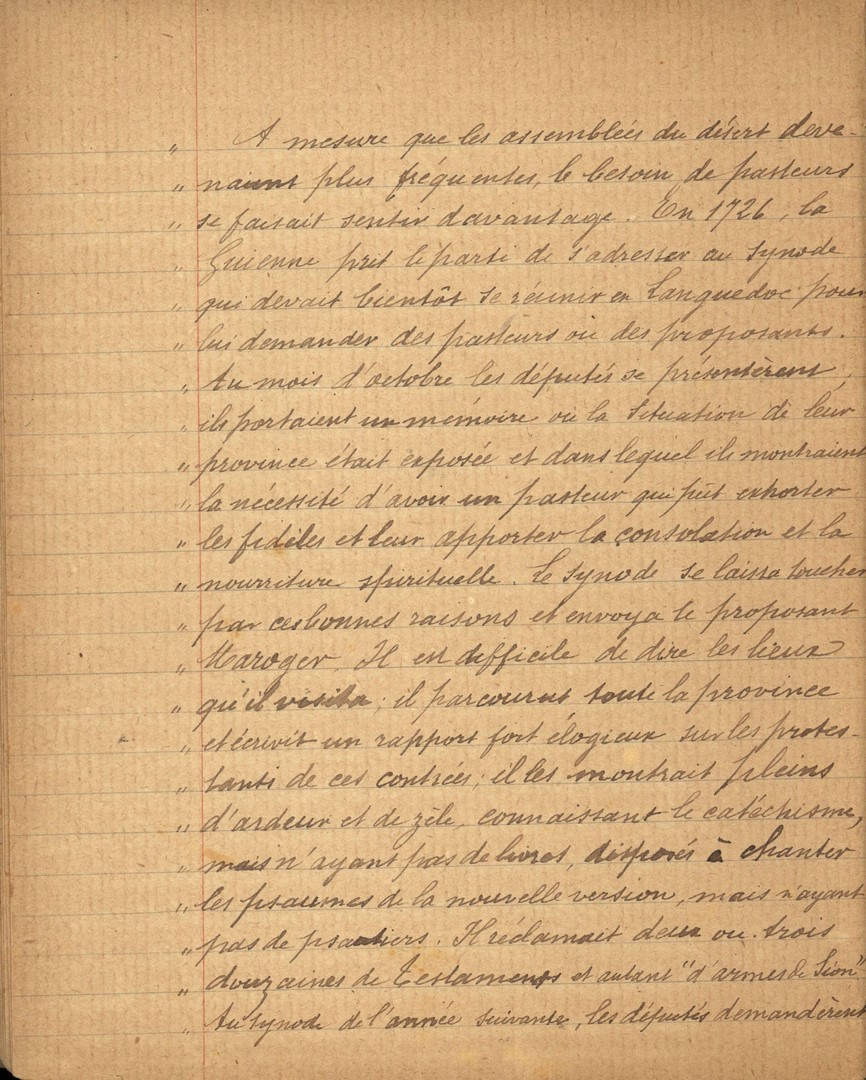 " A mesure que les assemblées du désert deve-
" naient plus fréquentes, le besoin de pasteurs
" se faisait sentir davantage. En 1726, la
" Guienne prit le parti de s'adresser au Synode
" qui devait bientôt se réunir en Languedoc pour
" lui demander des pasteurs ou des proposants.
" Au mois d'octobre les députés se présentèrent,
" ils portaient un mémoire où la situation de leur
" province était exposée et dans lequel ils montraient
" la nécessité d'avoir un pasteur qui pût exhorter
" les fidèles et leur apporter la consolation et la
" nourriture spirituelle. Le Synode se laissa toucher
" par ces bonnes raisons et envoya le proposant
" Maroger. Il est difficile de dire les lieux
" qu'il visita; il parcourut toute la province
" et écrivit un rapport fort élogieux sur les protes-
" tants de ces contrées; il les montrait pleins
" d'ardeur et de zèle, connaissant le catéchisme,
" mais n'ayant pas de livres, disposés à chanter
" les psaumes de la nouvelle version, mais n'ayant
" pas de psautiers. Il réclamait deux ou trois
" douzaines de Testaments et autant "d'armes de Sion"
" Au Synode de l'année suivante, les députés demandèrent